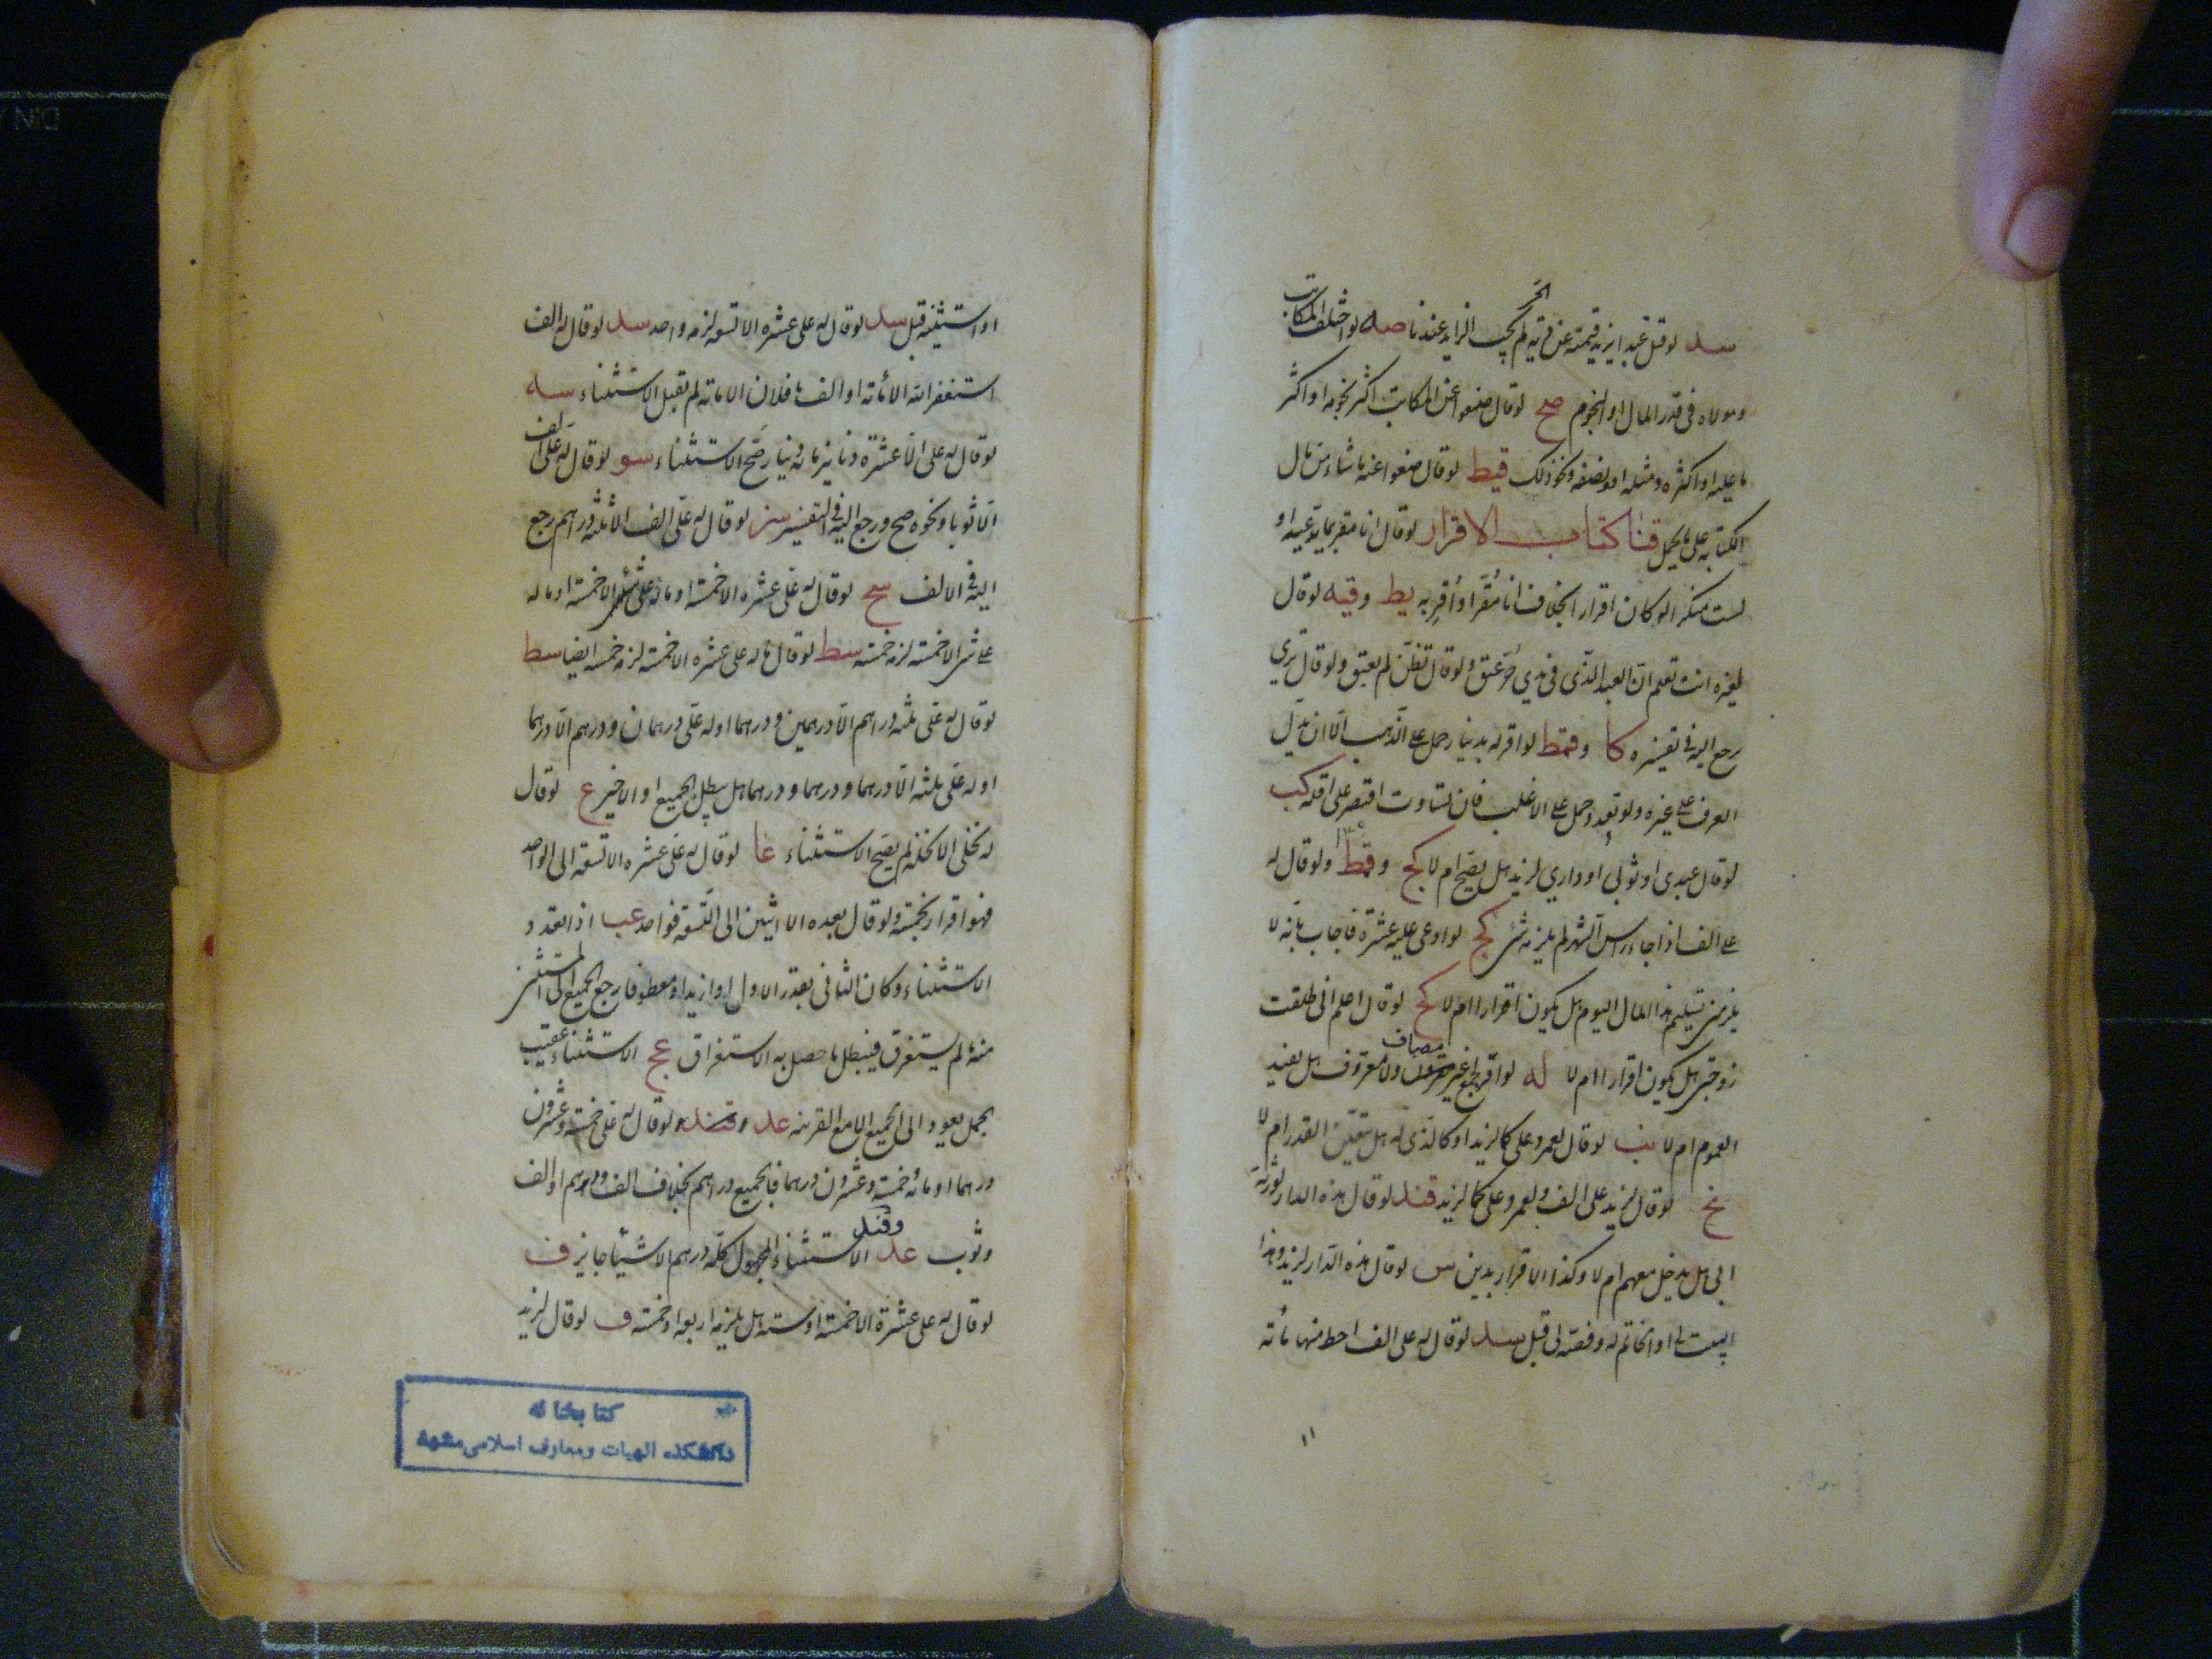 سد لو قتل عبدا يزيد قيمته عن دية الحر لم يجب الزايد عندنا صه لو اختلف المكاتب
ومولاه فى قدر المال او النجوم صح لو قال ضعوا عن المكاتب اكثر نجومه او اكثر
ما عليه او اكثره ومثله او نصفه ونحو ذلك قيط لو قال ضعوا عنه ما شاء من مال
الكتابة على ما يحمل قنا كتاب الاقرار لو قال انا مقر بما يدعيه او
لست منكرا له كان اقرارا بخلاف انا مقر او اُقِر به يط وقيه لو قال
لغيره انت تعلم ان العبد الذى فى يدي حر عتق ولو قال تظن لم يعتق ولو قال تري
رجع اليه فى تفسيره كا وقمط لو اقر له بدينار حمل على الذهب الا ان يدل
العرف على غيره ولو تعدد حمل على الاغلب فان تساوت اقتصر على اقله كب
لو قال عبدى او ثوبى او دارى لزيد هل يصح ام لا كج وقمط ولو قال له
على الف اذا جاء راس الشهر لم يلزمه شى كج لو ادعى عليه عشرة فاجاب بانه لا
يلزمنى تسليم هذا المال اليوم هل يكون اقرارا ام لا كج لو قال اعلم انى طلقت
زوجتى هل يكون اقرارا ام لا له لو اقر بجمع غير مضاف ولا معرف هل يفيد
العموم ام لا نب لو قال لعمرو على كما لزيد او كالذى له هل يتعين القدر ام لا
نج لو قال لزيد على الف ولعمرو على كما لزيد قند لو قال هذه الدار لورثة
ابى هل يدخل معهم ام لا وكذا الاقرار بدين س لو قال هذه الدار لزيد وهذا
البيت لى او الخاتم له وفصه لى قبل سد لو قال له على الف احط منها مائة
او استثنيه قبل سد لو قال له على عشره الا تسعه لزمه واحد سد لو قال له الف
استغفر الله الا مائة او الف يا فلان الا مائة لم تقبل الاستثناء سه
لو قال له على الا عشرة دنانير مائه دينار صح الاستثناء سو لو قال له على الف
الا ثوبا ونحوه صح ورجع اليه فى التفسير سز لو قال له على الف الا ثلثه دراهم رجع
اليه فى الالف سح لو قال له على عشره الا خمسة او ماله على شى الا خمسة او ماله
على شى الا خمسة لزمه خمسة سط لو قال ماله على عشره الا خمسة لزمه خمسه ايضا سط
لو قال له على ثلثه دراهم الا درهمين ودرهما او له على درهمان ودرهم الا درهما
او له على ثلثه الا درهما ودرهما ودرهما هل يبطل الجميع او الاخير ع لو قال
له نخلى الا نخله لم يصح الاستثناء عا لو قال له على عشره الا تسعة الى الواحد
فهو اقرار بخمسة ولو قال بعده الا اثنين الى التسعة فواحد عب اذا تعدد
الاستثناء وكان الثانى بقدر الاول او ازيد او معطوفا رجع الجميع الى المستثنى
منه ما لم يستغرق فيبطل ما حصل به الاستغراق عج الاستثناء عقيب
الجمل يعود الى الجميع الا مع القرينه عد وقند ولو قال له على خمسة وعشرون
درهما او مائه خمسة وعشرون درهما فالجميع دراهم بخلاف الف ودرهم او الف
وثوب عد وقند الاستثناء المجهول كله درهم الا شيئا جايز ف
لو قال له على عشرة الا خمسة او ستة هل يلزمه اربعه او خمسة ف لو قال لزيد
كتابخانه
دانشكده الهيات ومعارف اسلامى مشهد